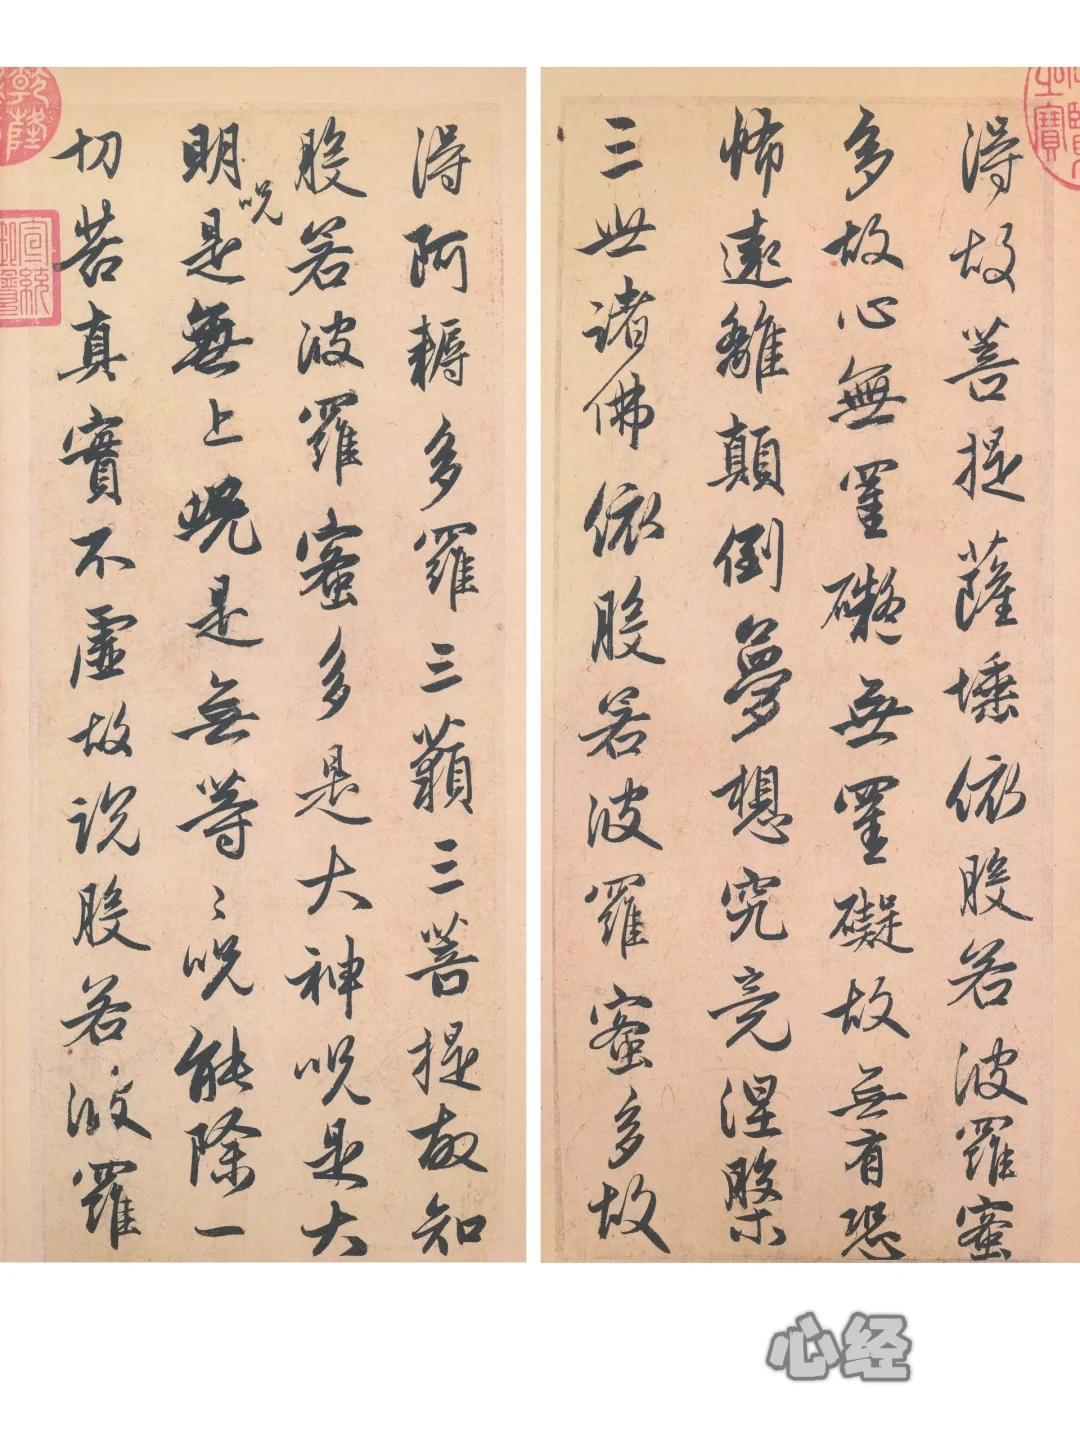 得故菩提薩埵依般若波羅蜜
多故心無罣礙無罣礙故無有恐
怖遠離顛倒夢想究竟涅槃
三世諸佛依般若波羅蜜多故
得阿耨多羅三藐三菩提故知
般若波羅蜜多是大神呪是大
明呪是無上呪是無等〻呪能除一
切苦真實不虛故説般若波羅
乾隆
宣統
心经